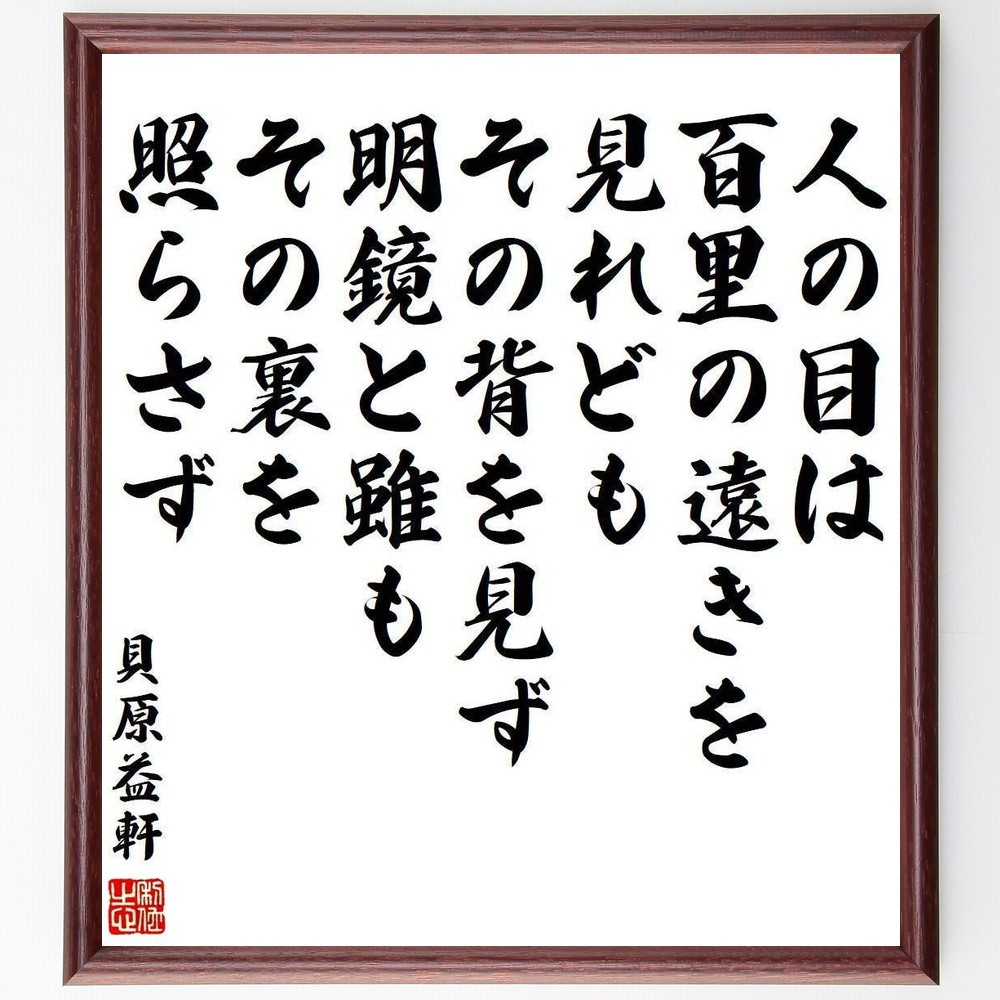 人の目は
百里の遠きを
見れども
その背を見ず
明鏡と雖も
その裏を
照らさず
貝原益軒